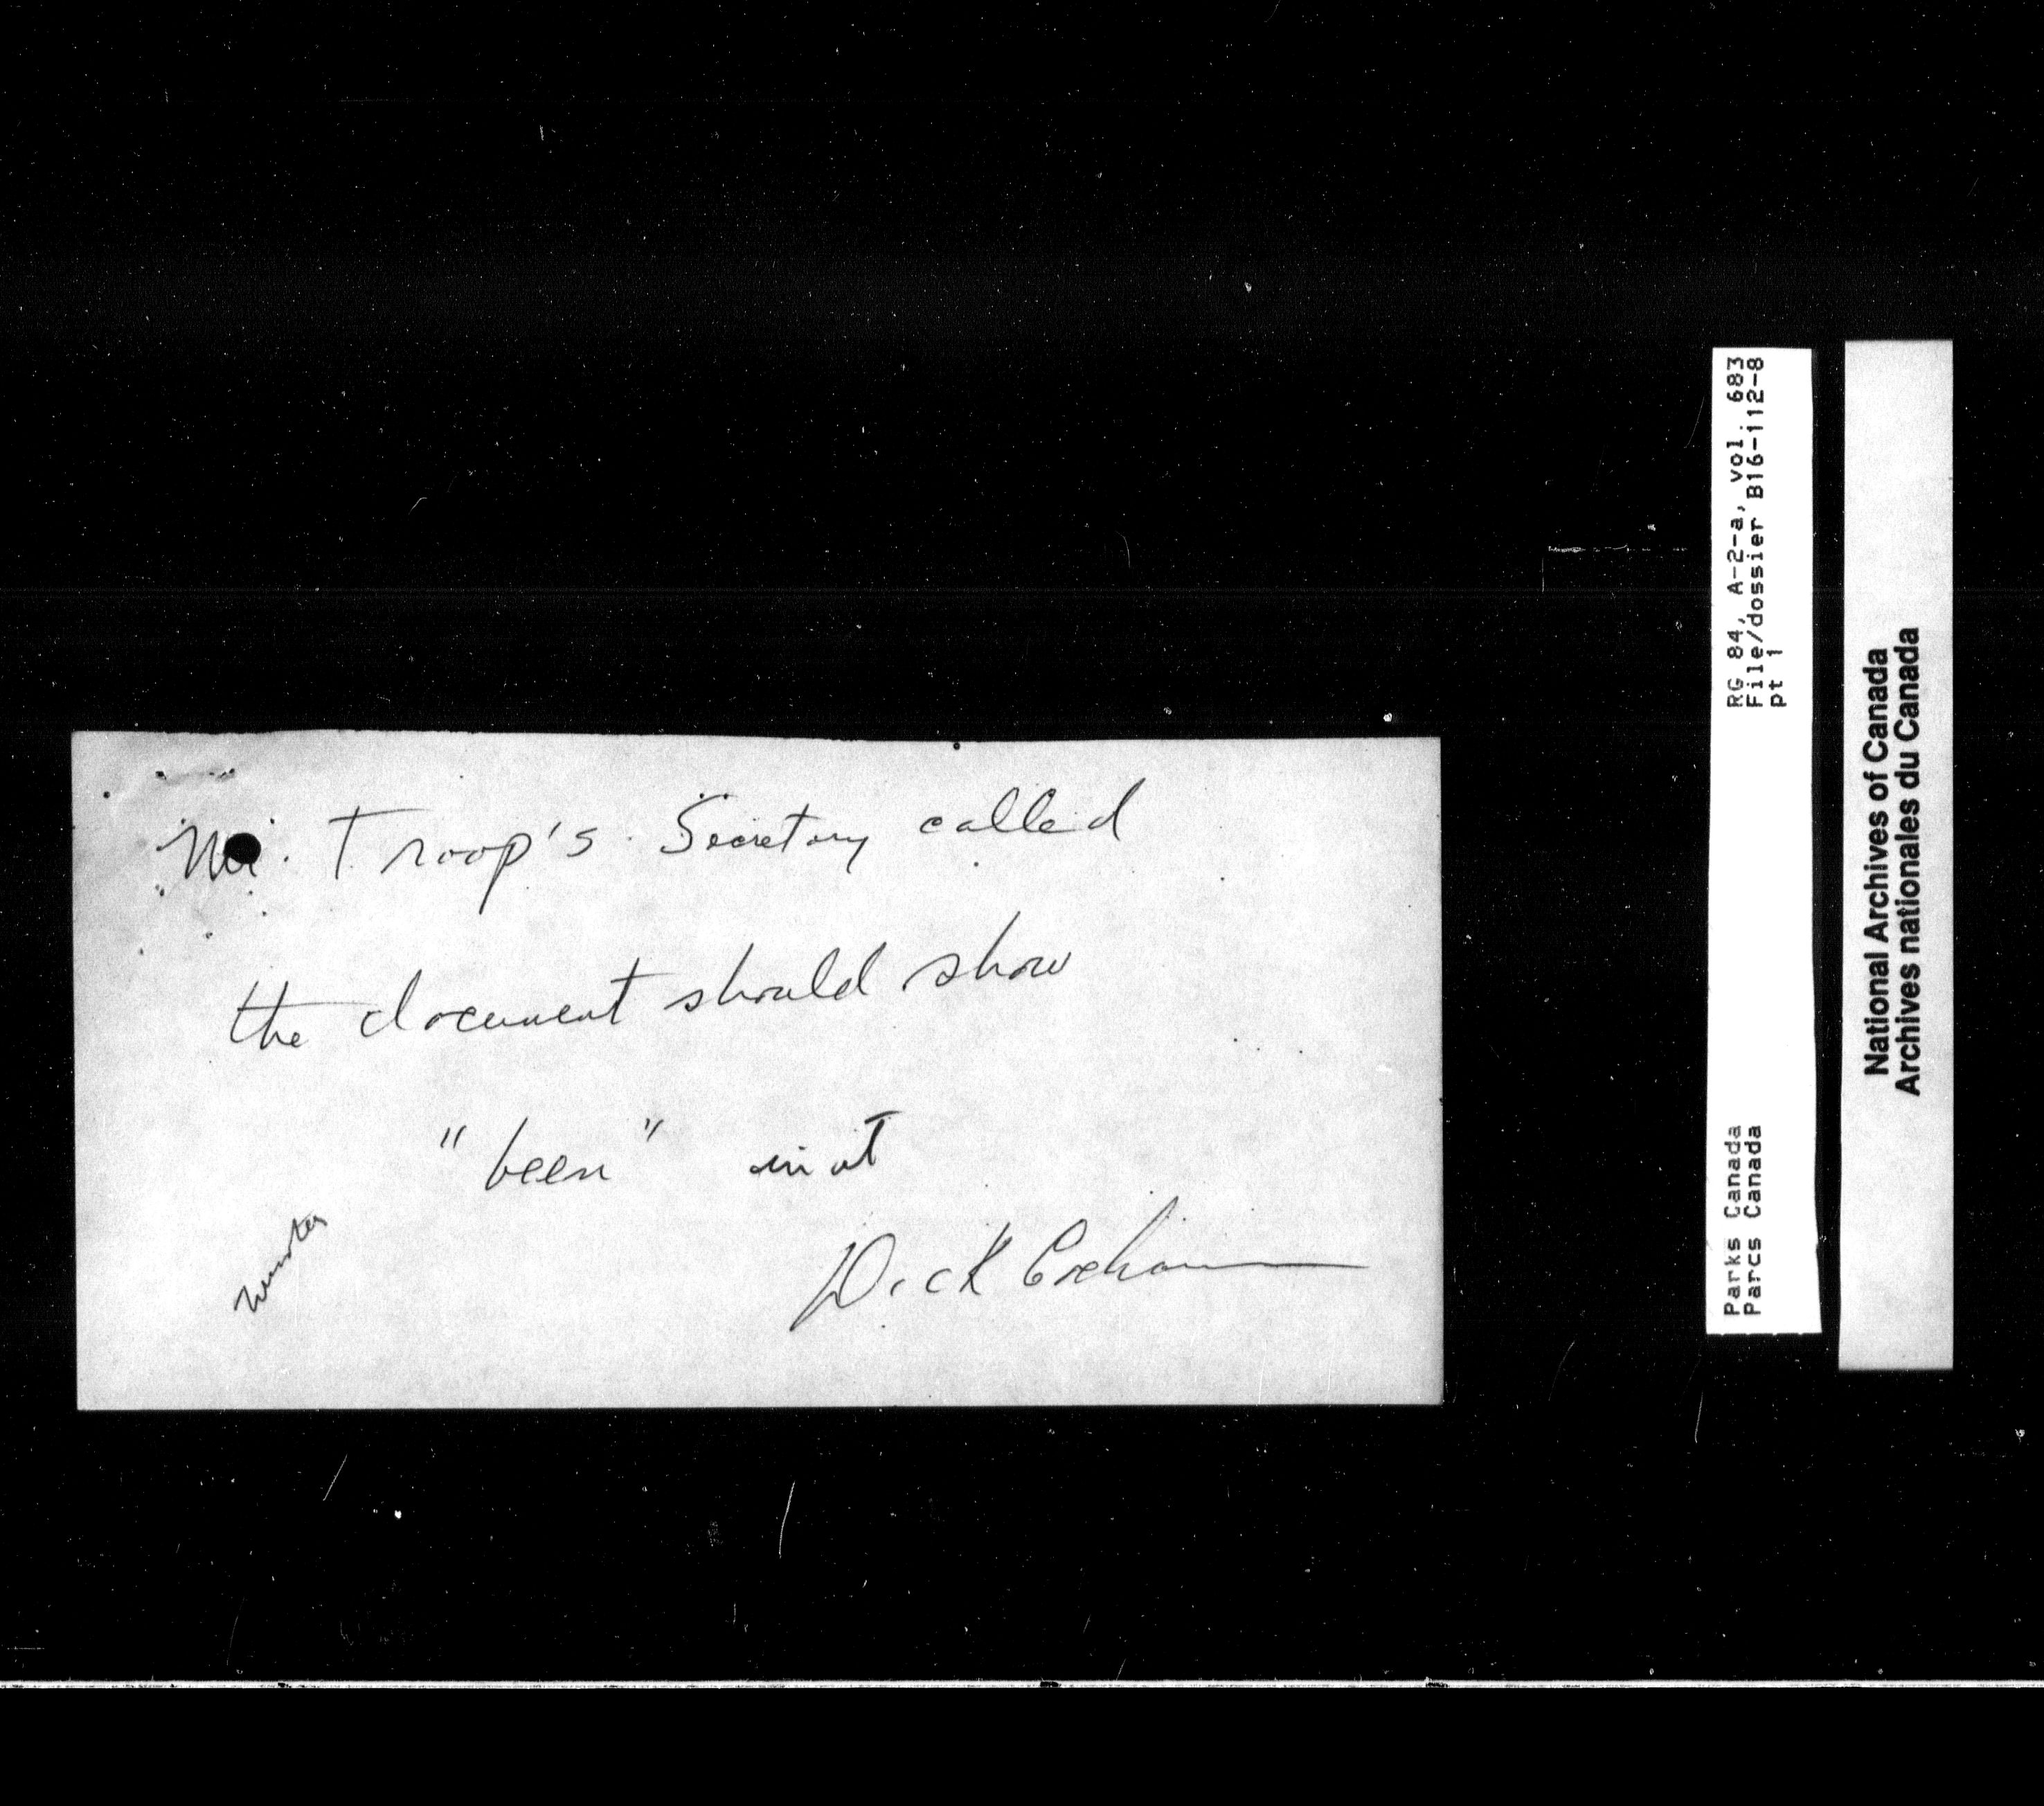 Mr. Troop's Secretary called
the document should show
"been" in it
Dick
RG 84, A-2-a, vol. 683
File/dossier B16-112-8
pt 1
Parks Canada
Parcs Canada
National Archives of Canada
Archives nationales du Canada